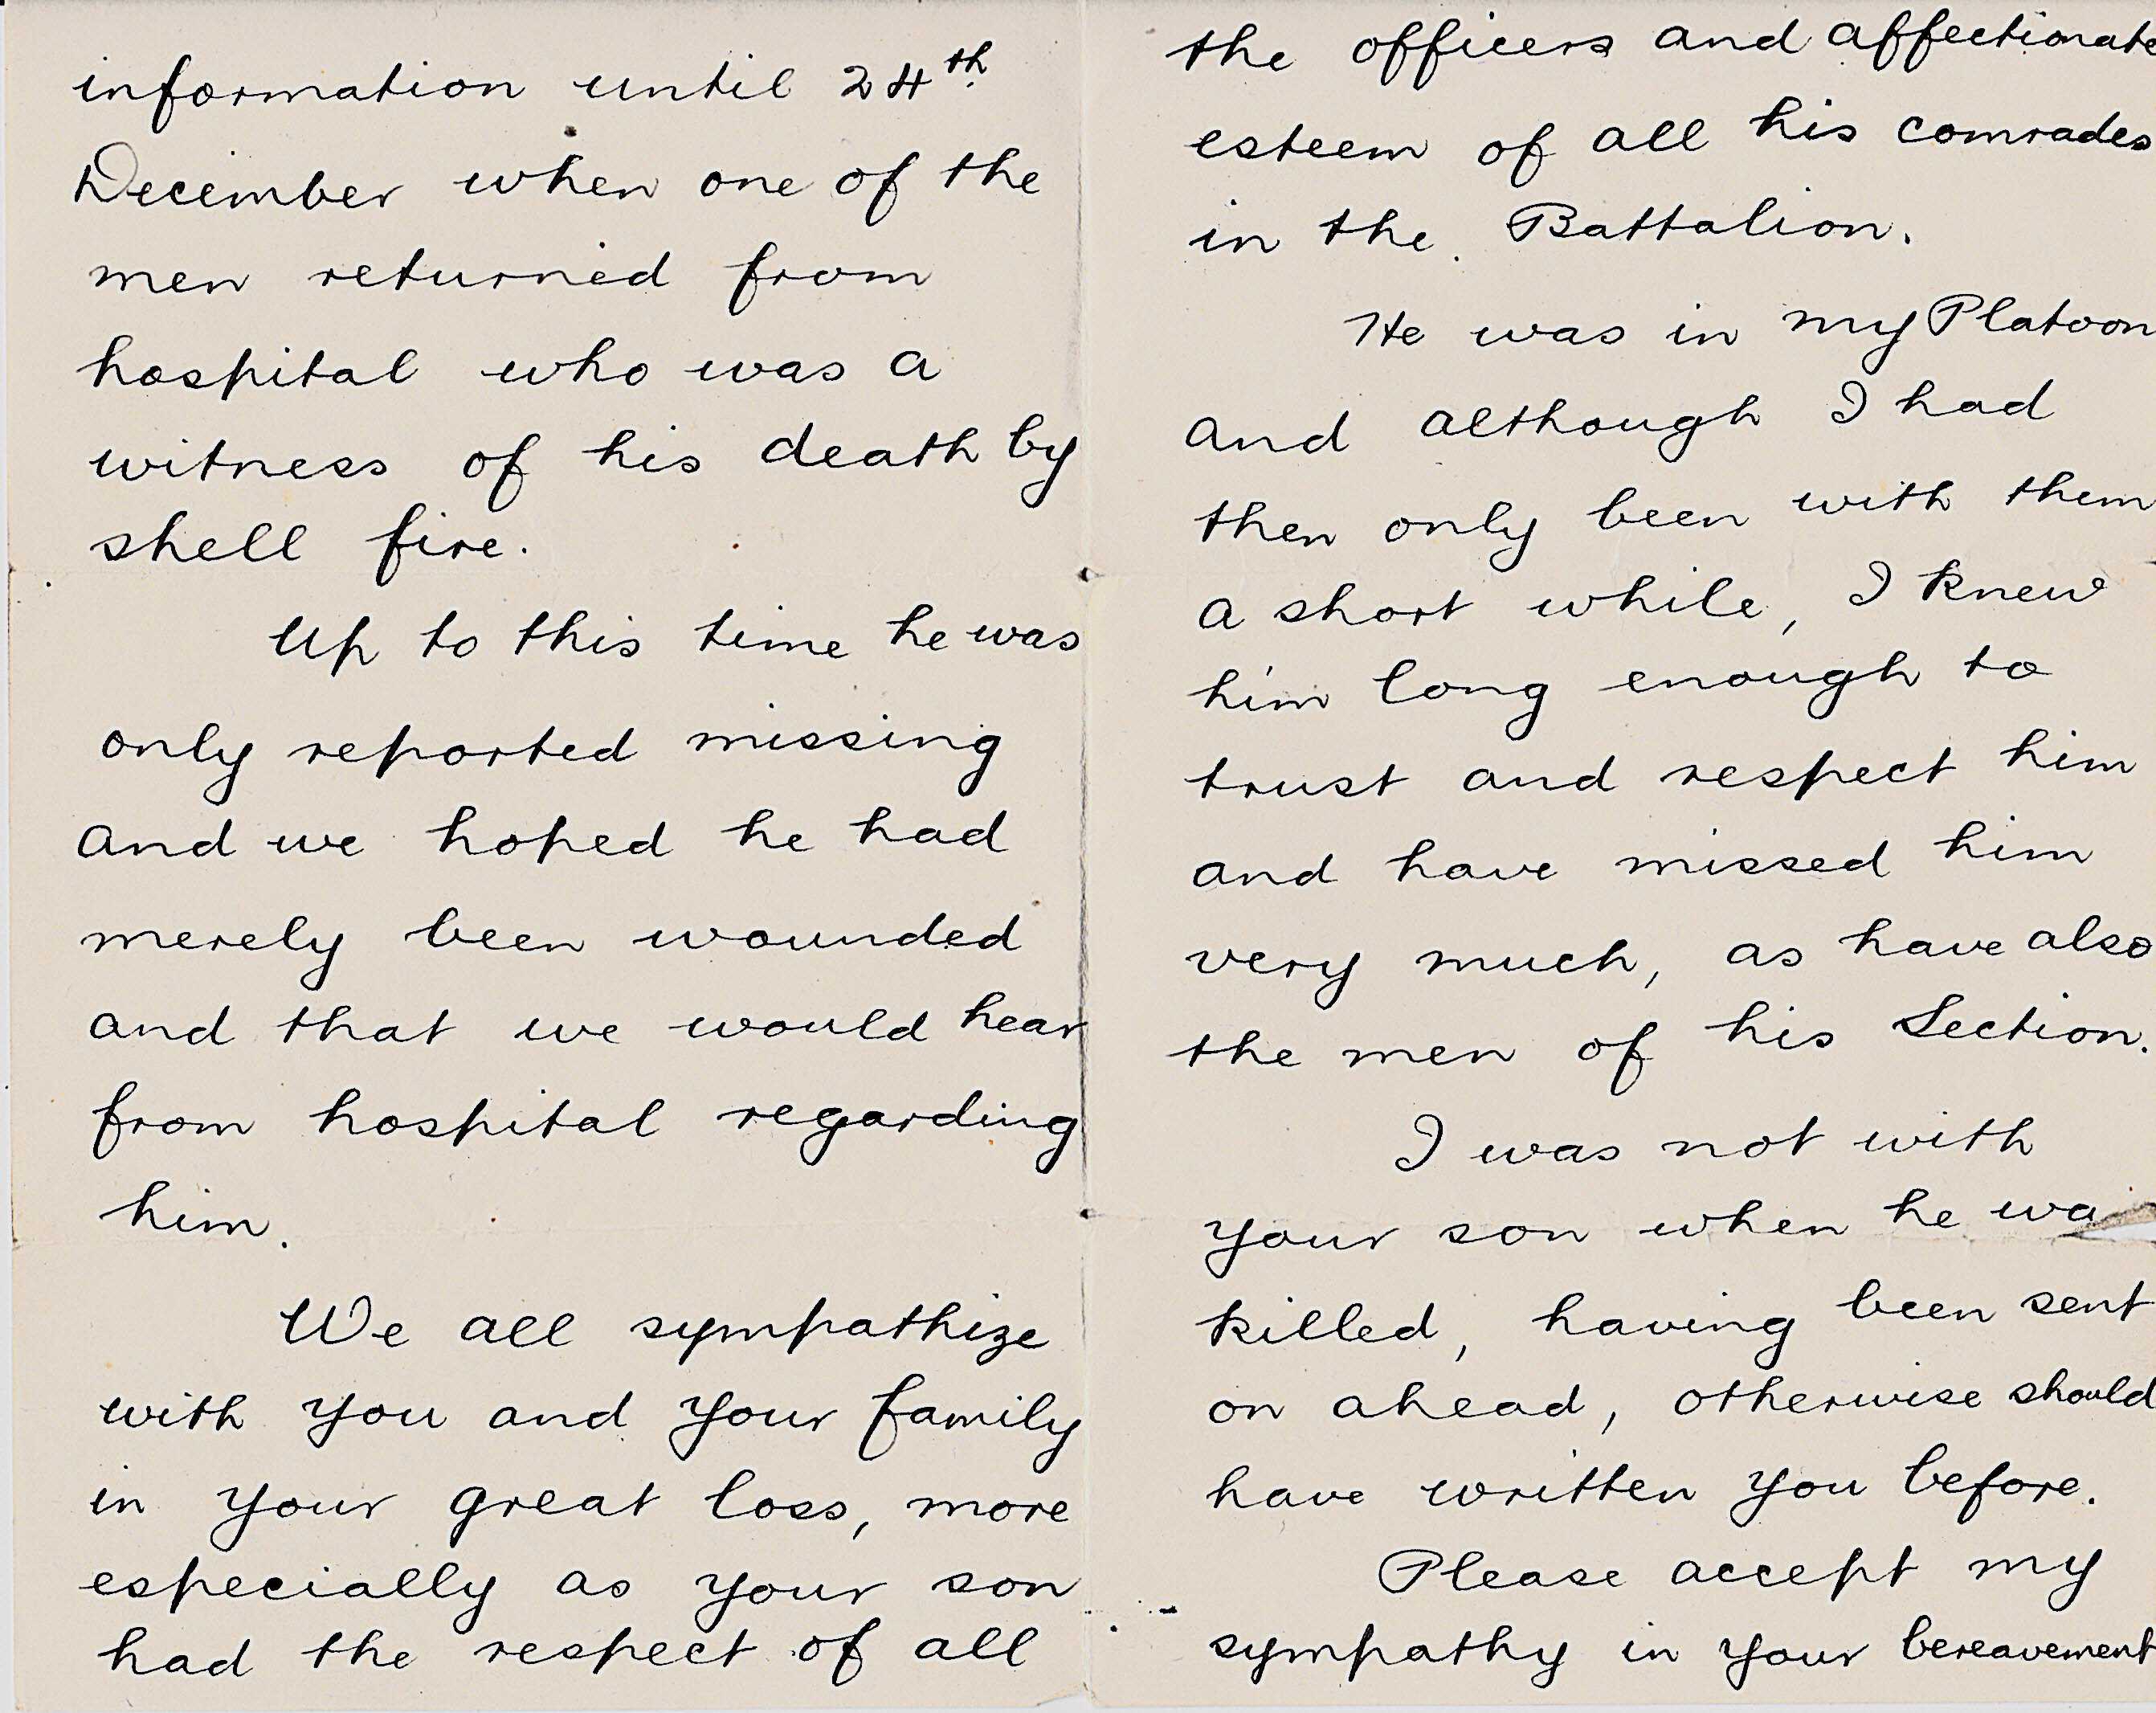 information until 24th.
December when one of the
men returned from
hospital who was a
witness of his death by
shell fire.
Up to this time he was
only reported missing
and we hoped he had
merely been wounded
and that we would hear
from hospital regarding
him.
We all sympathize
with you and your family
in your great loss, more
especially as your son
had the respect of all
the officers and affectionate
esteem of all his comrades
in the Battalion.
He was in my Platoon
and although I had
then only been with them
a short while, I knew
him long enough to
trust and respect him
and have missed him
very much, as have also
the men of his Section.
I was not with
your son when he wa
killed, having been sent
on ahead, otherwise should
have written you before.
Please accept my
sympathy in your bereavement